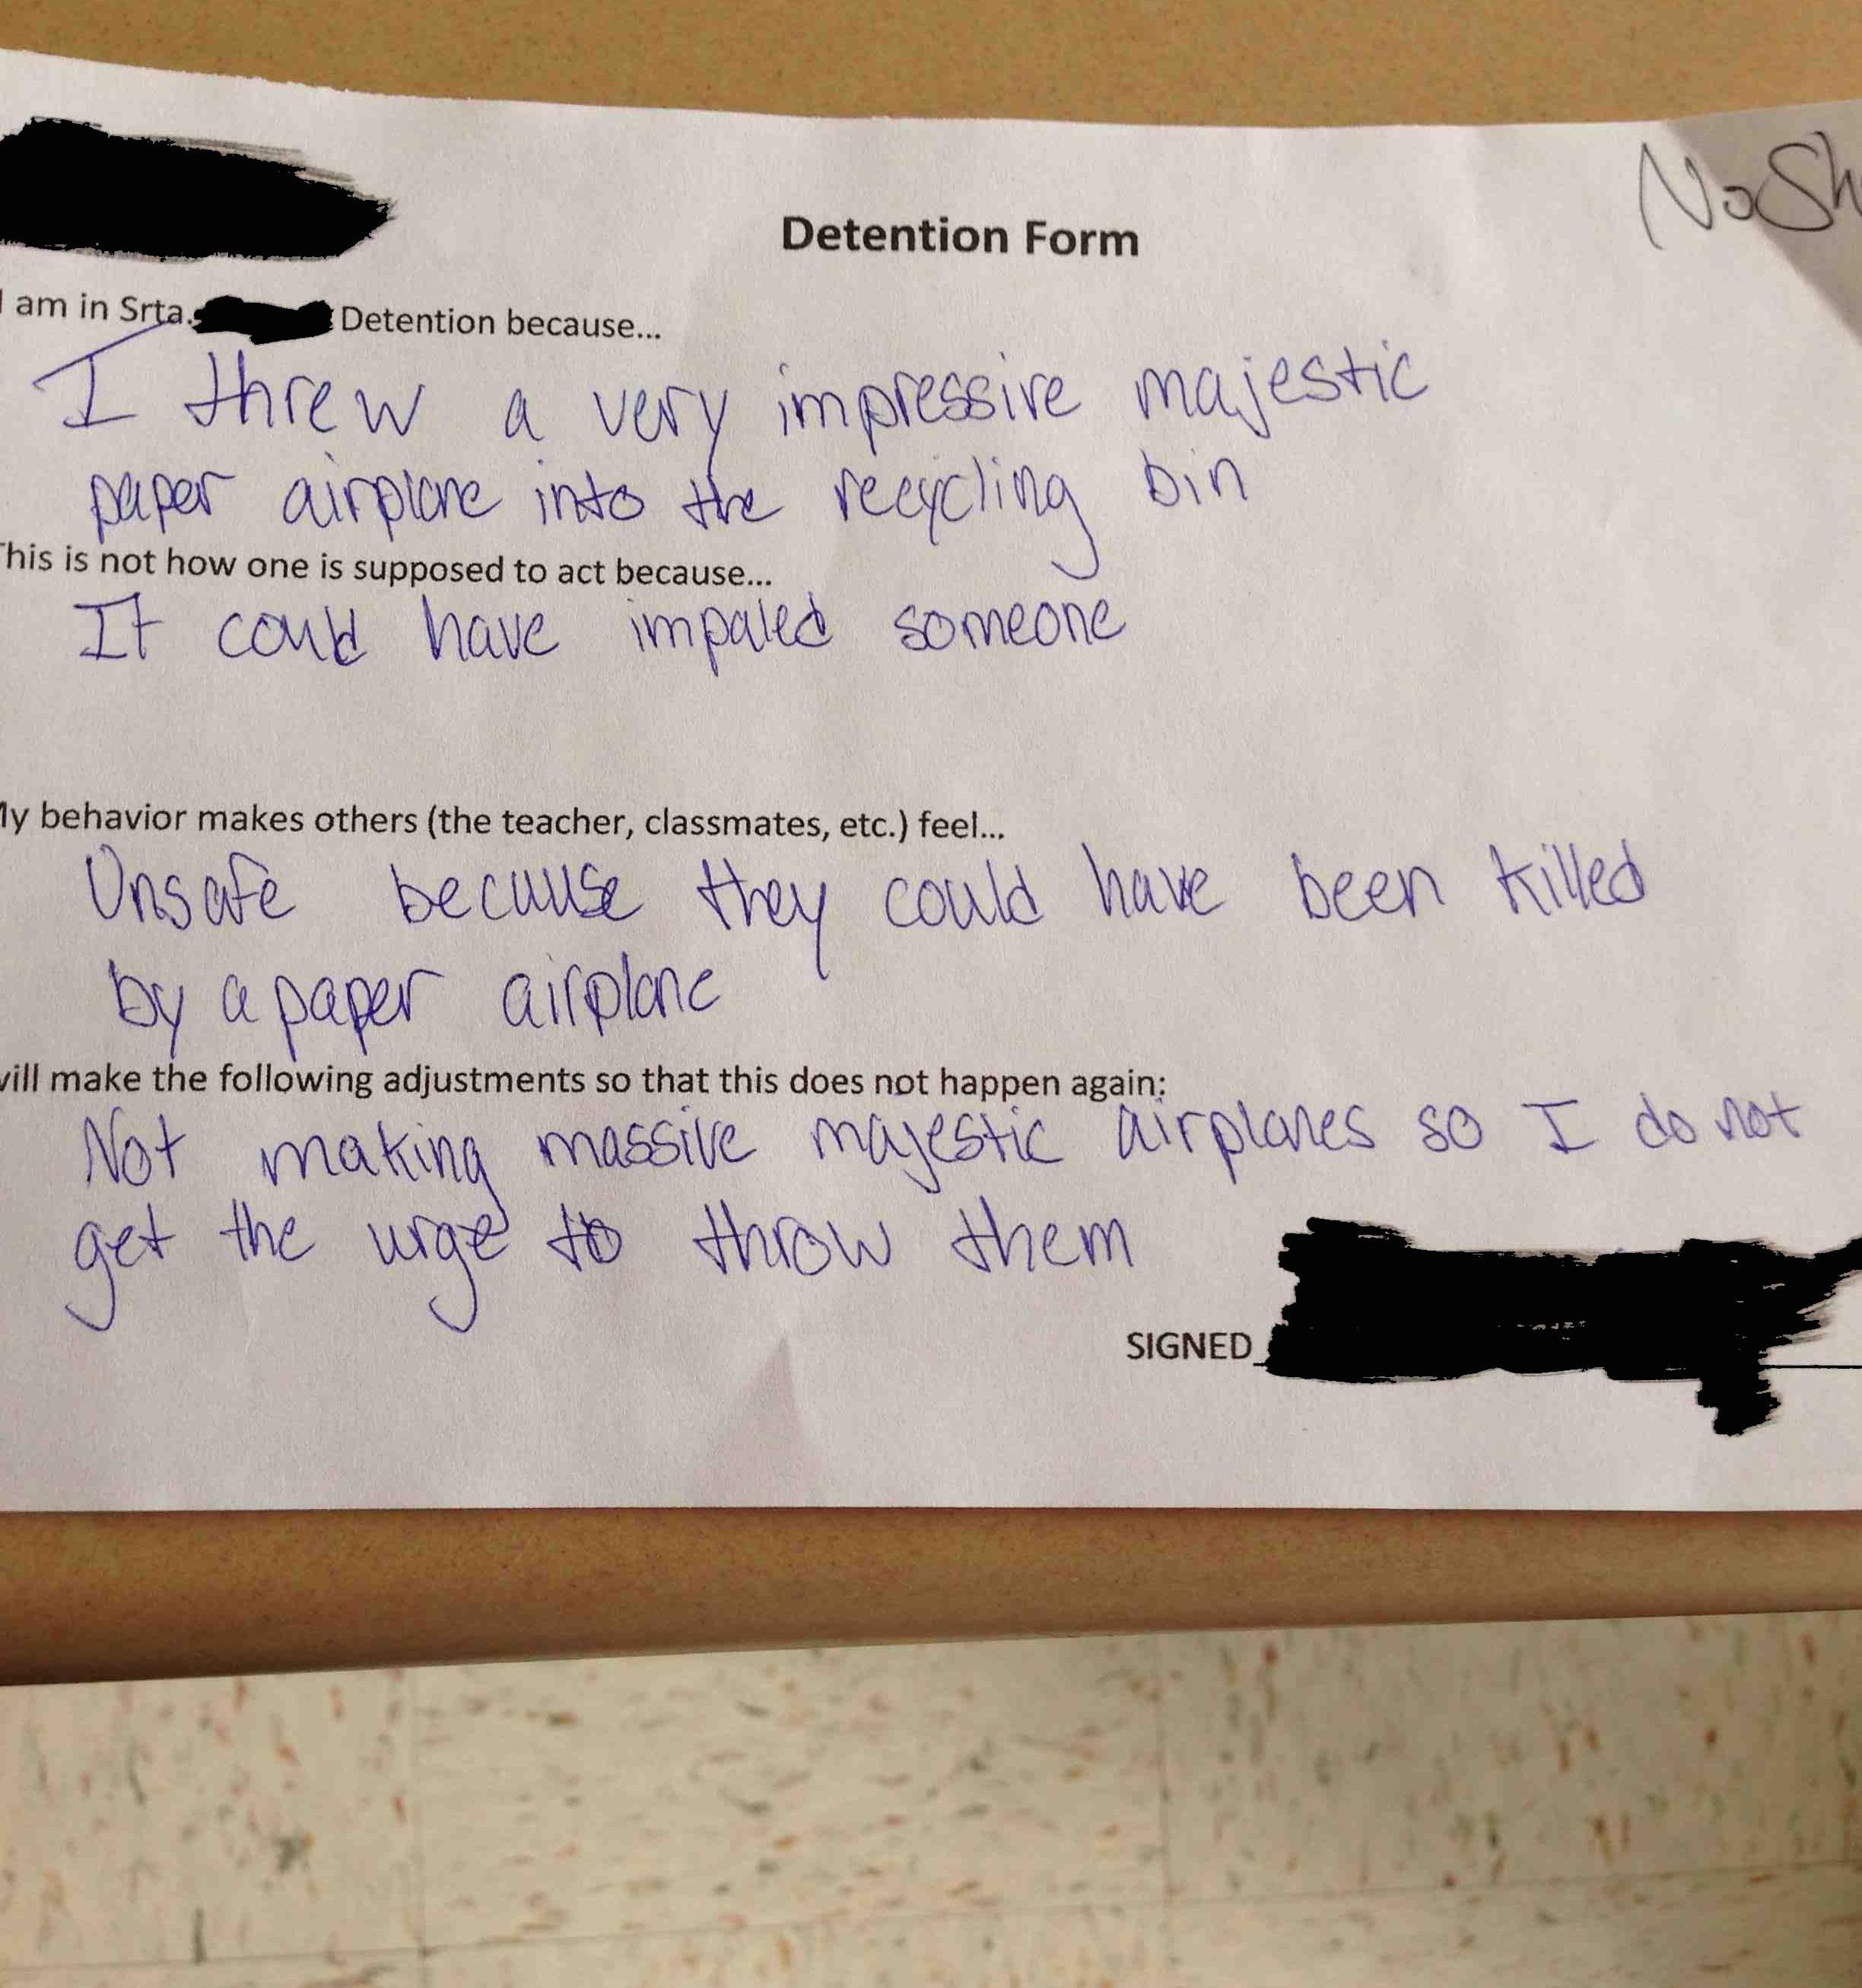 NoSh
Detention Form
I am in Srta. Detention because...
I threw a very impressive majestic
paper airplane into the recycling bin
This is not how one is supposed to act because...
It could have impaled someone
My behavior makes others (the teacher, classmates, etc.) feel...
Unsafe because they could have been killed
by a paper airplane
will make the following adjustments so that this does not happen again:
Not making massive majestic airplanes so I do not
get the urge to throw them
SIGNED